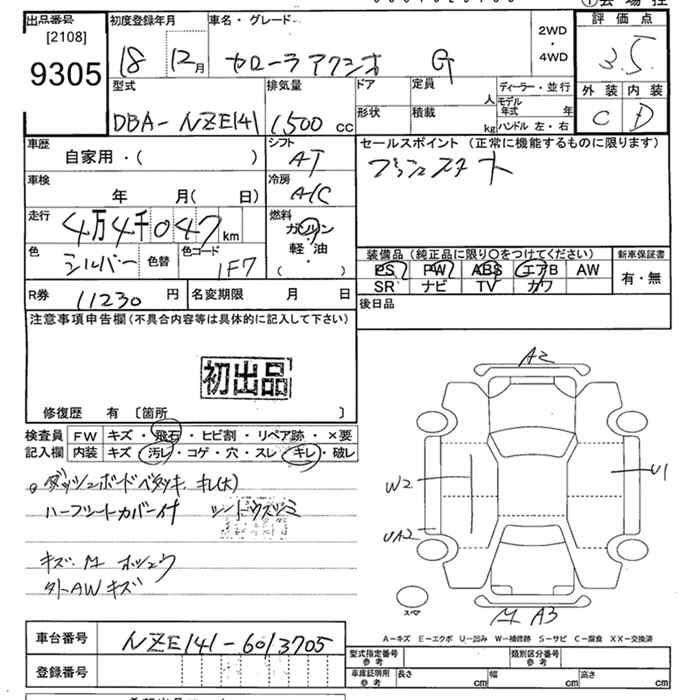 出品番号
[2108]
9305
初度登録年月
18 12月
車名・グレード
カローラアクシオ G
2WD
・
4WD
評価点
3.5
外装 内装
C D
型式
DBA-NZE141
排気量
1,500 cc
ドア
形状
定員
人
積載
kg
ディーラー・並行
モデル年式 年
ハンドル 左・右
車歴
自家用・( )
シフト
AT
セールスポイント (正常に機能するものに限ります)
プッシュスタート
車検
年 月( 日)
冷房
A/C
走行
4万4千047km
燃料
ガソリン
軽・油
( ・ )
色
シルバー
色替
色コード
1F7
装備品 (純正品に限り〇をつけてください)
PS PW ABS エアB AW
SR ナビ TV カワ
新車保証書
有・無
R券
11230 円
名変期限 月 日
後日品
注意事項申告欄(不具合内容等は具体的に記入して下さい)
初出品
修復歴 有 〔箇所 〕
検査員
記入欄
FW キズ・飛石・ヒビ割・リペア跡・×要
内装 キズ・汚レ・コゲ・穴・スレ・キレ・破レ
ダッシュボードベタツキ キレ(大)
ハーフシートカバー付 シートウスズミ
キズ、M ホシュウ
外AWキズ
A2
W2
U1
UA2
スペア
M A3
A-キズ E-エクボ U-凹み W-補修跡 S-サビ C-腐食 XX-交換済
車台番号
NZE141-6013705
登録番号
型式指定番号
参考
類別区分番号
参考
車庫証明用
参考
長さ cm 幅 cm 高さ cm